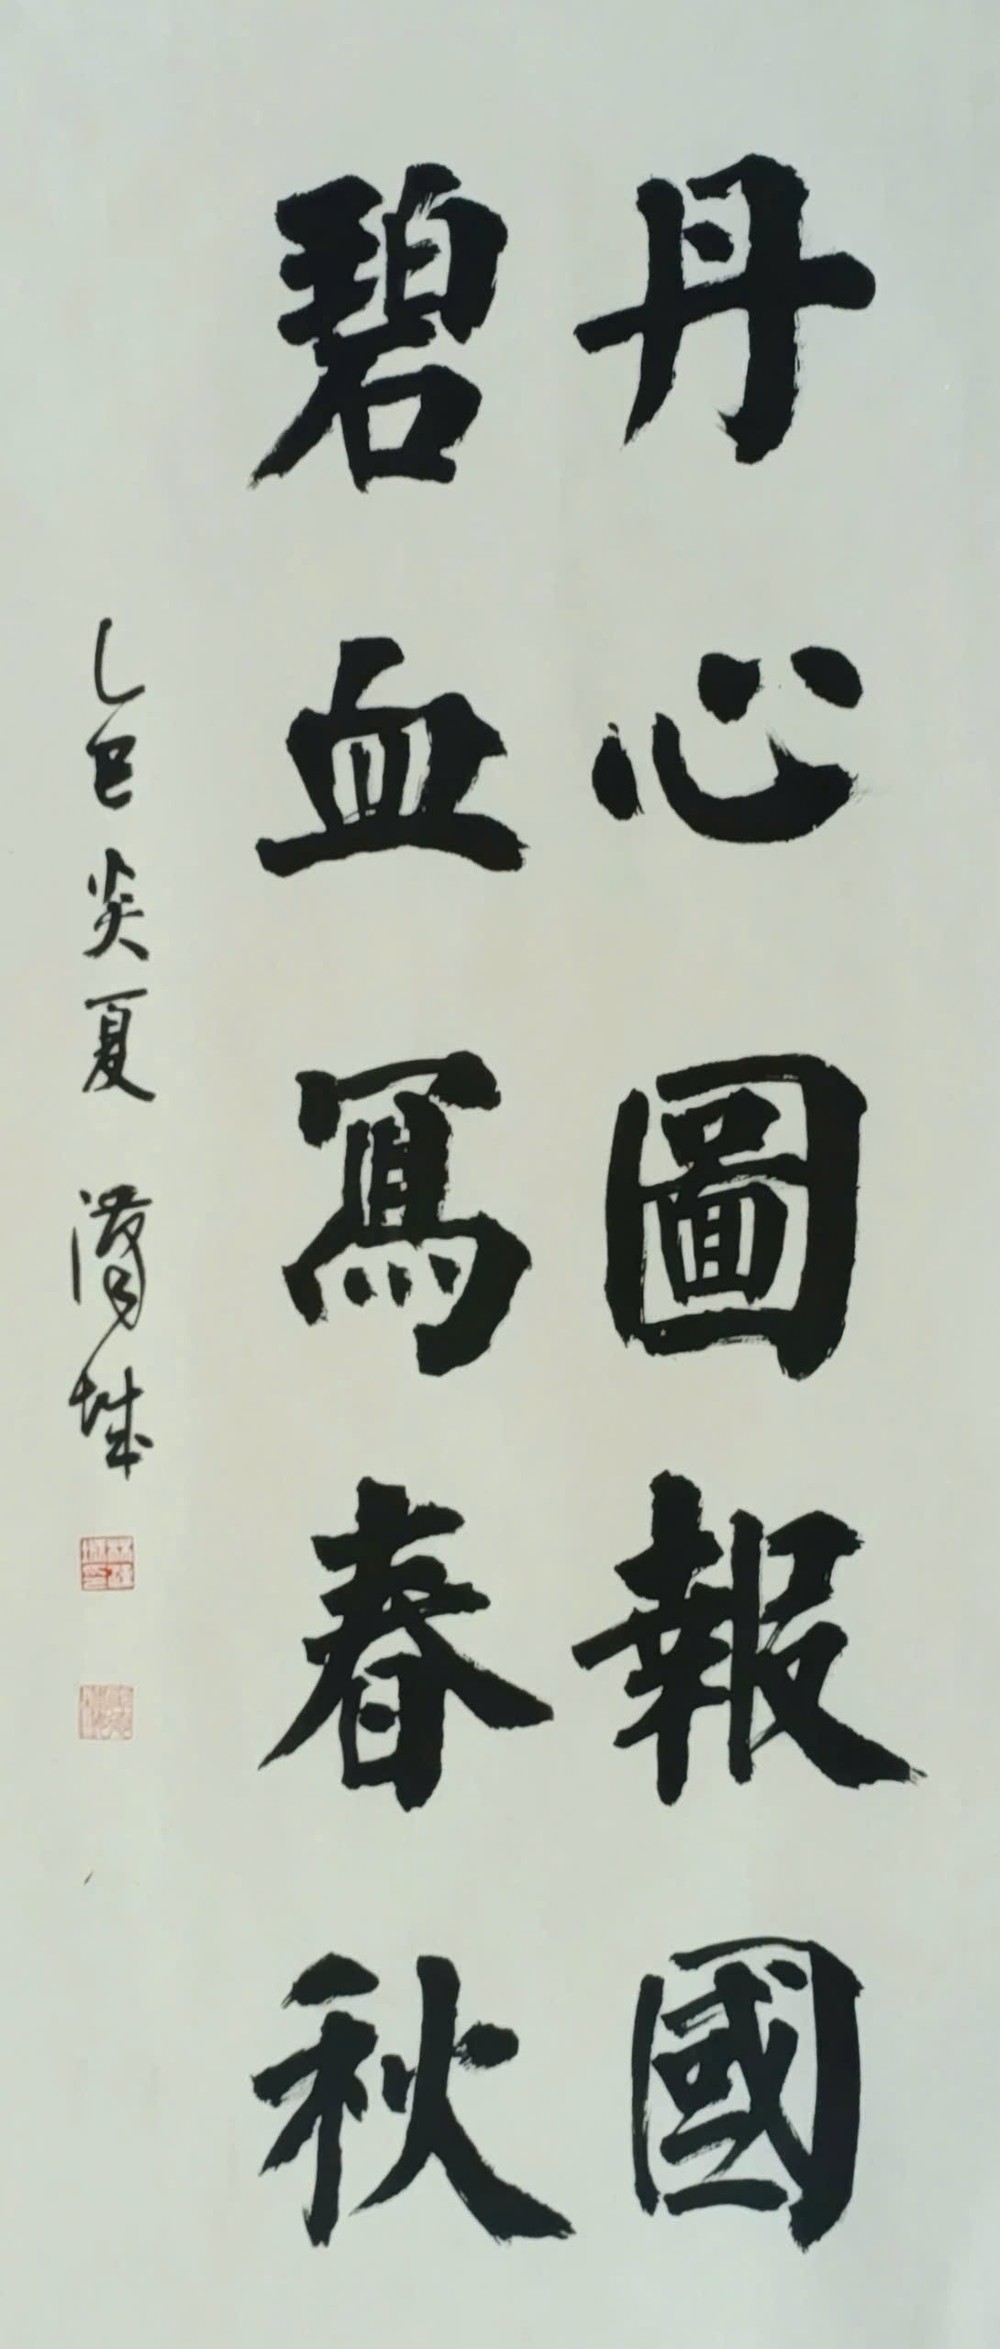 丹心圖報國
碧血寫春秋
乙巳炎夏 城